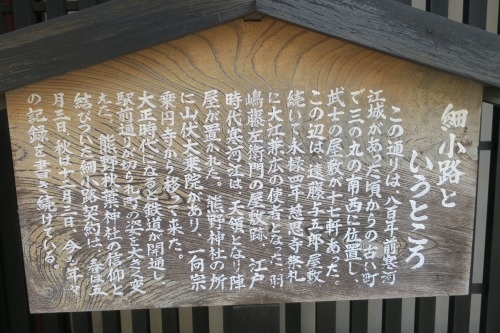 細小路と
いうところ
この通りは、八百年前寒河
江城があった頃からの古い町
で三の丸の南西に位置し、
武士の屋敷が十七軒あった。
この辺は、遠藤与五郎屋敷
続いて永禄四年慈恩寺祭礼
に大江兼広の使者となった羽
嶋藤左衛門の屋敷跡、江戸
時代寒河江は、天領となり陣
屋が置かれた。熊野神社の所
に山伏大乗院があり、一向宗
乗円寺から移って来た。
大正時代になると鉄道が開通し
駅前通りが切られ町の姿を大きく変
えた。熊野秋葉神社の信仰と
結びついた細小路契約は、春は五
月三日、秋は十二月二日、今も年々
の記録を書き続けている。